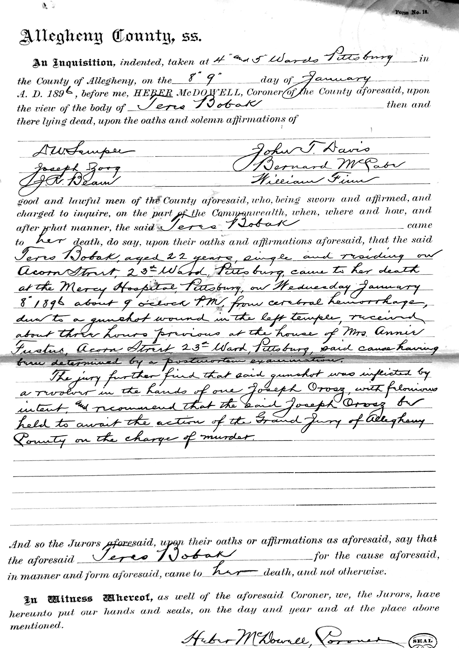 Form No. 14.
Allegheny County, ss.
An Inquisition, indented, taken at 4" and 5 Wards Pittsburg in
the County of Allegheny, on the 8" 9" day of January
A. D. 1896, before me, HEBER McDOWELL, Coroner of the County aforesaid, upon
the view of the body of Teres Bobak then and
there lying dead, upon the oaths and solemn affirmations of
John T Davis
Joseph Zorg Bernard McCabe
J. R. Beam William Finn
good and lawful men of the County aforesaid, who, being sworn and affirmed, and
charged to inquire, on the part of the Commonwealth, when, where and how, and
after what manner, the said Teres Bobak came
to her death, do say, upon their oaths and affirmations aforesaid, that the said
Teres Bobak, aged 22 years, single and residing on
Acorn Street, 23rd Ward, Pittsburg, came to her death
at the Mercy Hospital, Pittsburg, on Wednesday January
8" 1896 about 9 oclock PM from cerebral hemorrhage,
due to a gunshot wound in the left temple, received
about three hours previous at the house of Mrs. Annie
Acorn Street 23rd Ward, Pittsburg, said cause having
been determined by a postmortem examination.
The jury further find that said gunshot was inflicted by
a revolver in the hands of one Joseph Orosz, with felonious
intent and recommend that the said Joseph Orosz be
held to await the action of the Grand Jury of Allegheny
County on the charge of murder
And so the Jurors aforesaid, upon their oaths or affirmations as aforesaid, say that
the aforesaid Teres Bobak for the cause aforesaid,
in manner and form aforesaid, came to her death, and not otherwise.
In Witness Whereof, as well of the aforesaid Coroner, we, the Jurors, have
hereunto put our hands and seals, on the day and year and at the place above
mentioned.
Heber McDowell, Coroner SEAL